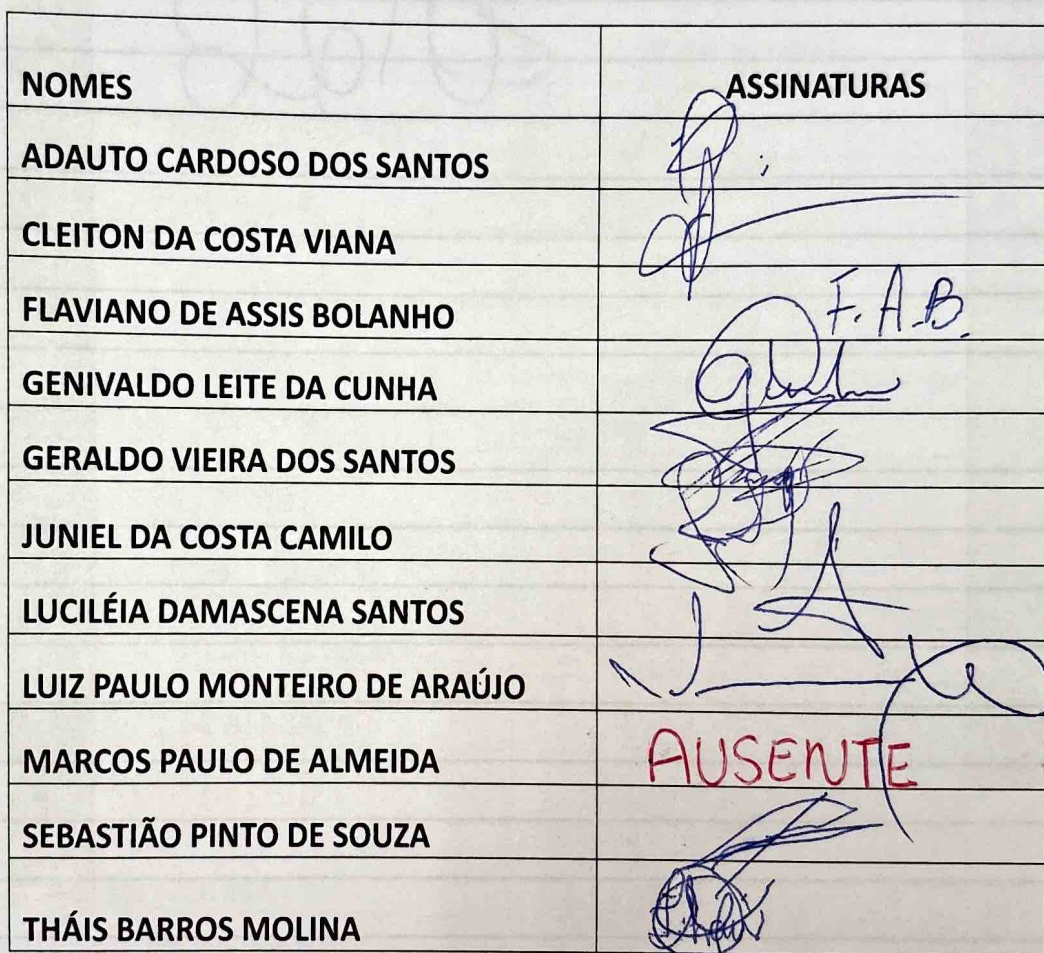 NOMES ASSINATURAS
ADAUTO CARDOSO DOS SANTOS
CLEITON DA COSTA VIANA
FLAVIANO DE ASSIS BOLANHO F.A.B.
GENIVALDO LEITE DA CUNHA
GERALDO VIEIRA DOS SANTOS
JUNIEL DA COSTA CAMILO
LUCILÉIA DAMASCENA SANTOS
LUIZ PAULO MONTEIRO DE ARAÚJO
MARCOS PAULO DE ALMEIDA AUSENTE
SEBASTIÃO PINTO DE SOUZA
THÁIS BARROS MOLINA